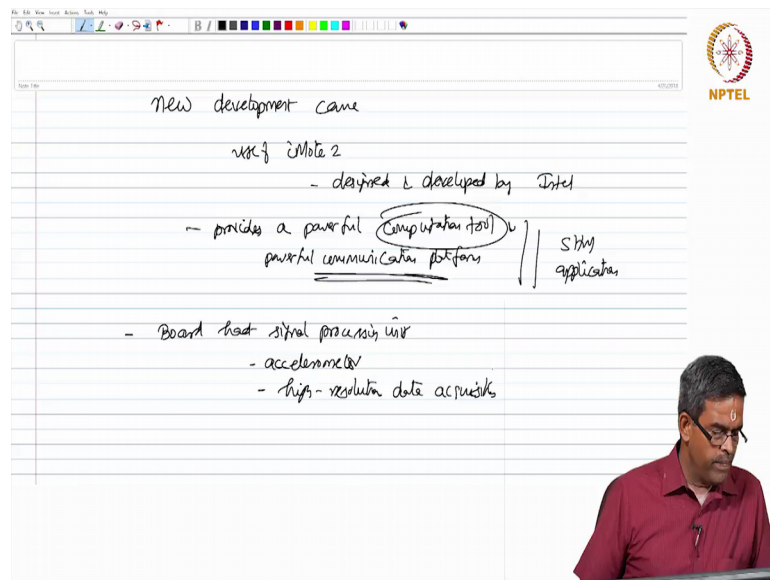 File Edit View Insert Actions Tools Help
B I
Note Title
4/25/2018
NPTEL
New development came
use of iMote 2
- designed & developed by Intel
- provides a powerful computation tool &
powerful communication platform
SHM
application
- Board had signal processing unit
- accelerometer
- high-resolution data acquisition